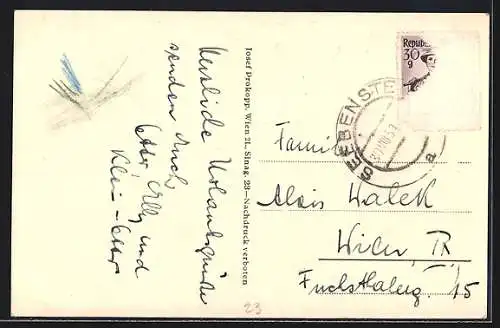 Herzliche Urlaubsgrüße
senden Euch
Etta, Elly und
Klein-Etta
Josef Prokopp, Wien 21., Sinag. 23 — Nachdruck verboten
Republik
30
g
SEEBENSTE
a
Familie
Alois Walek
Wien, IX
Fuchsthalerg. 15
23